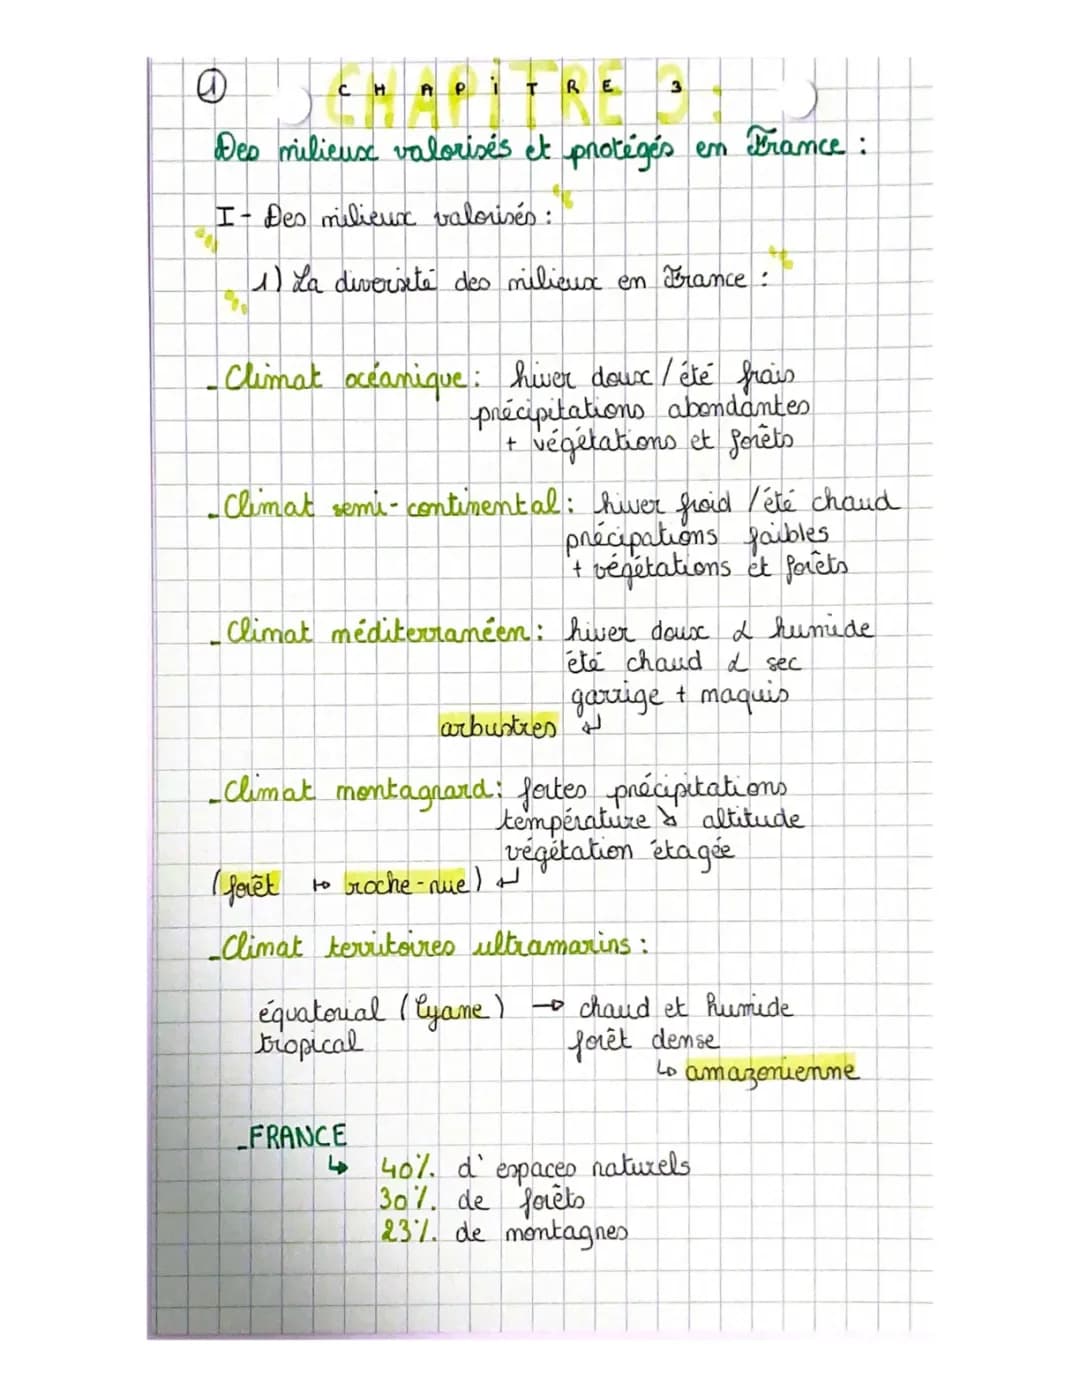 ①
CHAPiTRE 3 :
C H A P i T R E 3
Des milieux valorisés et protégés en France :
I- Des milieux valorisés :
1) La diversité des milieux en France :
- Climat océanique : hiver doux / été frais
précipitations abondantes
+ végétations et forêts
- Climat semi-continental : hiver froid / été chaud
précipations faibles
+ végétations et forêts
- Climat méditerranéen : hiver doux & humide
été chaud & sec
garrige + maquis
arbustres ↲
- Climat montagnard : fortes précipitations
température ↘ altitude
végétation étagée
(forêt ↦ roche-nue) ↲
- Climat territoires ultramarins :
équatorial (Gyane) → chaud et humide
tropical forêt dense
↳ amazonienne
- FRANCE
↳ 40% d'espaces naturels
30% de forêts
23% de montagnes